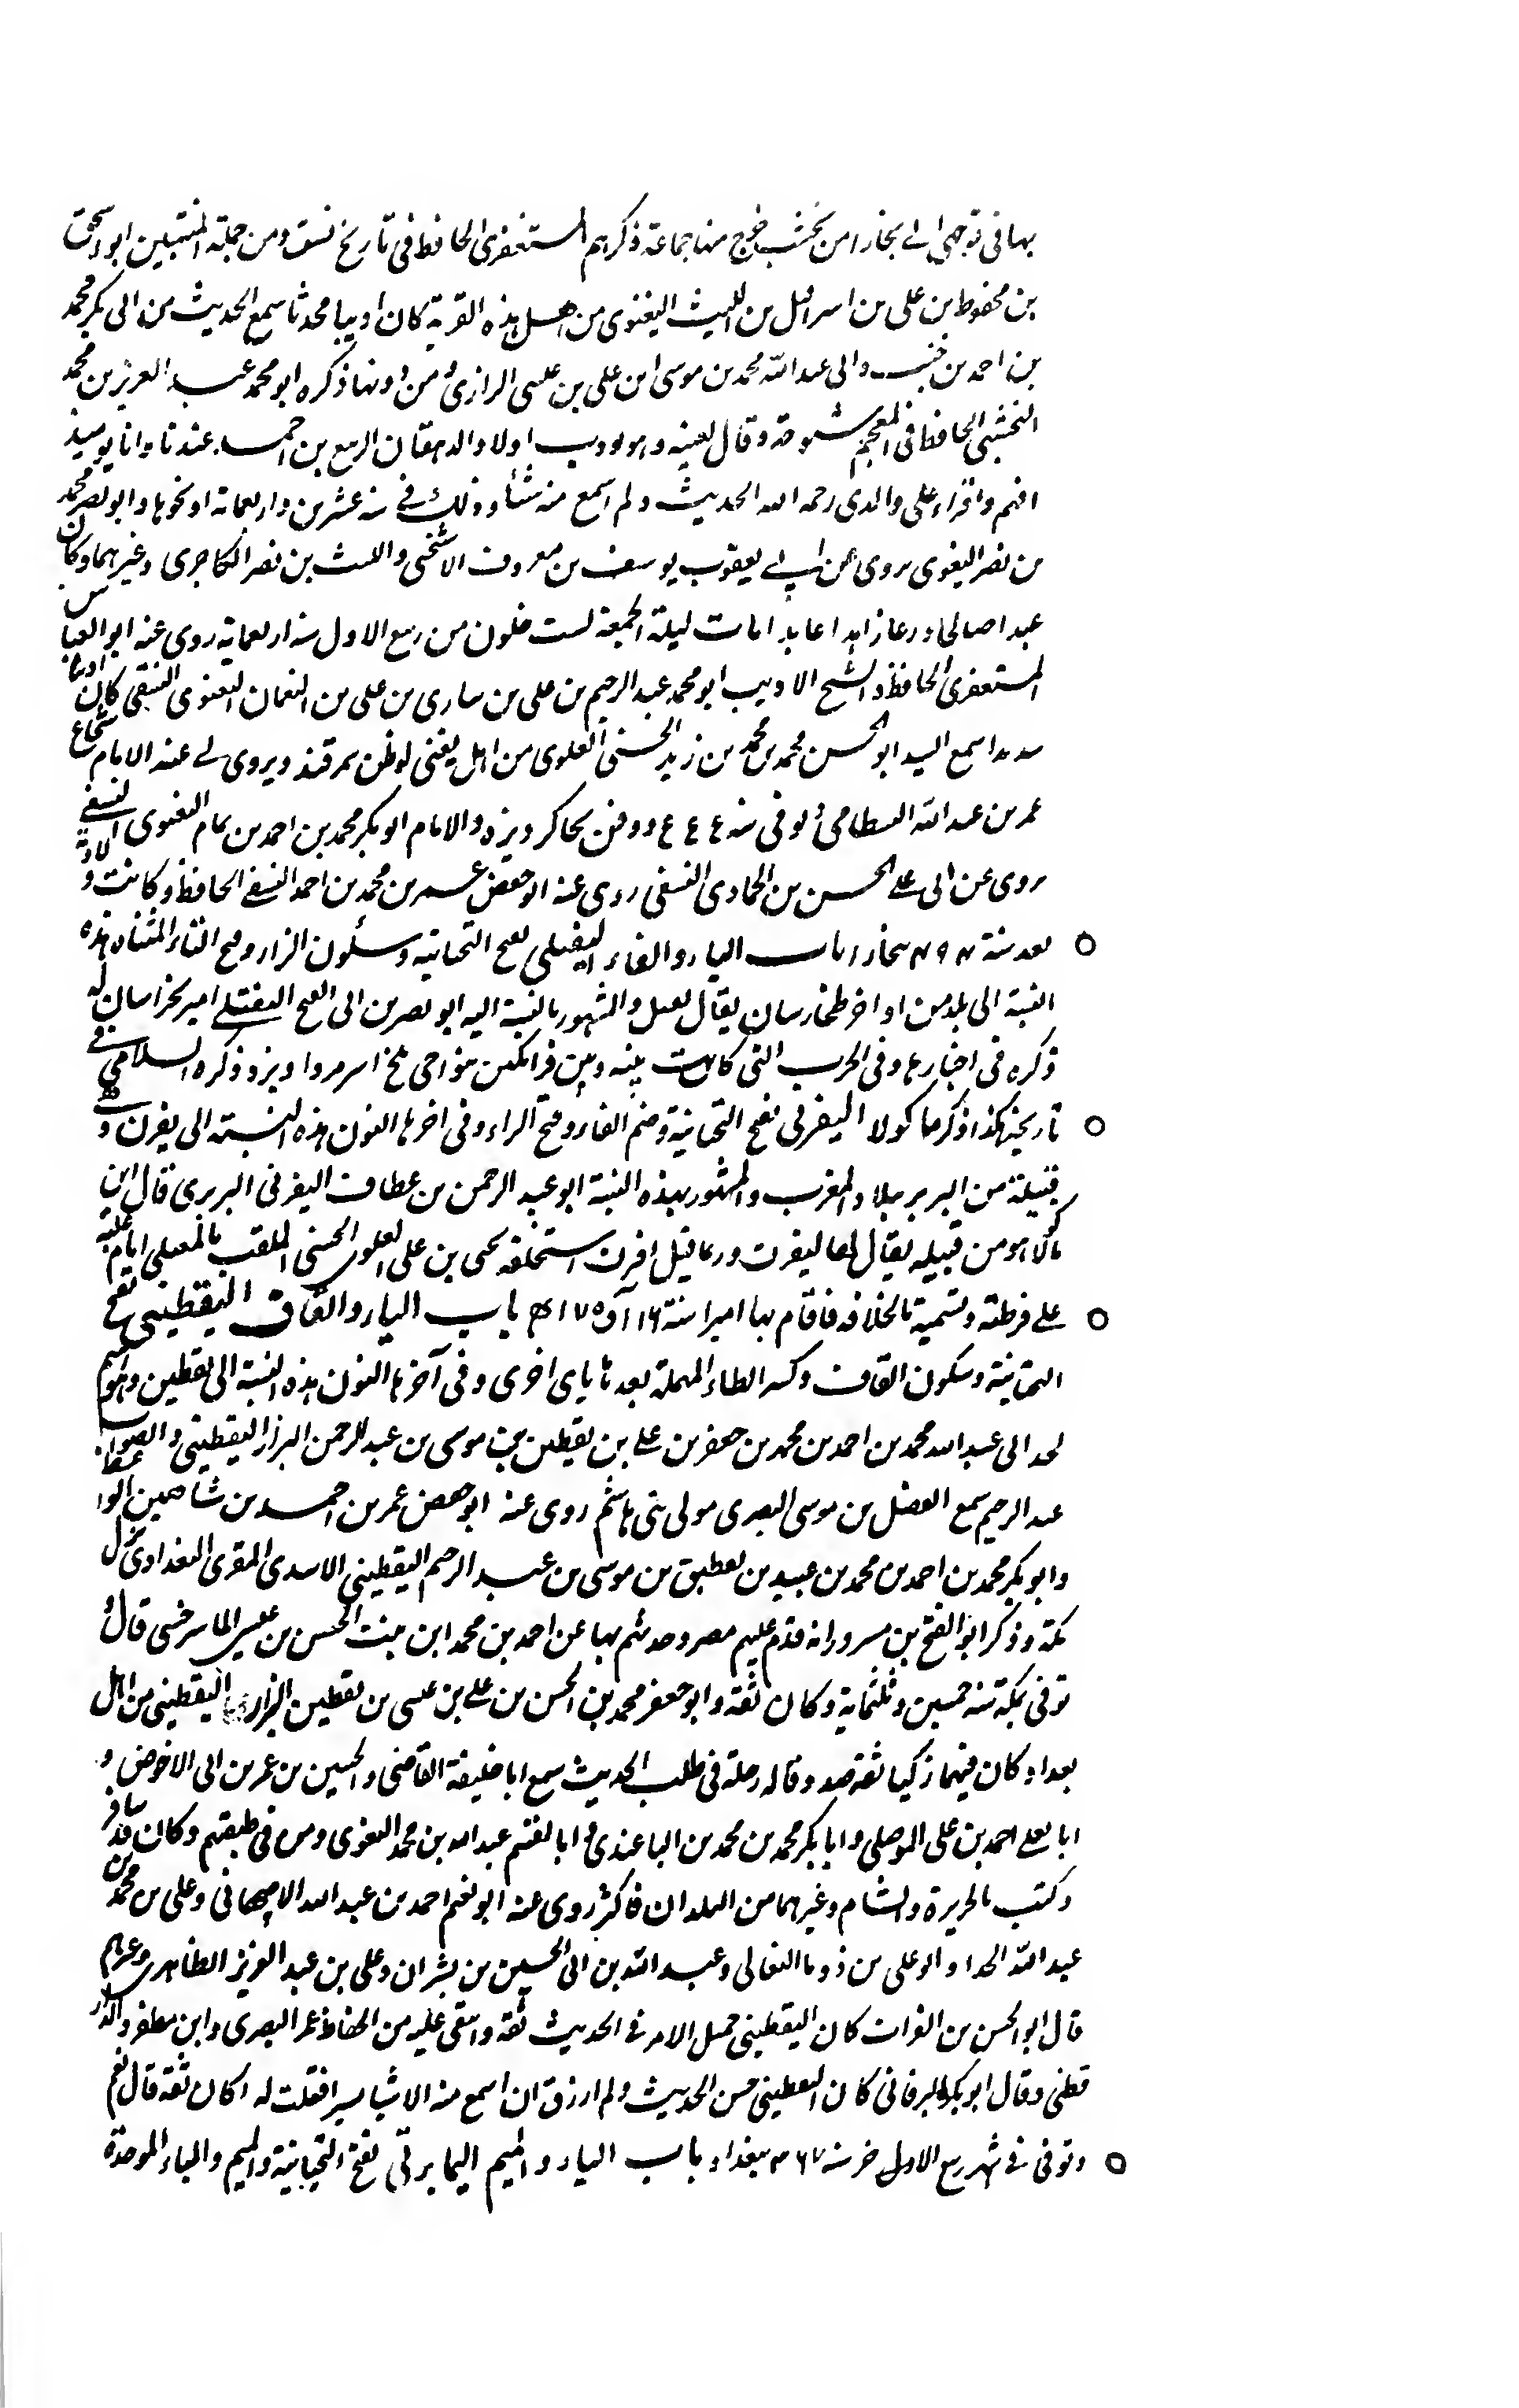 بها فى توجهى الى بخارا من نخشب خرج منها جماعة ذكرهم المستغفرى الحافظ فى تاريخ نسف ومن جملة المنتسبين ابو اسحق
بن محفوظ بن على بن اسرائيل بن الليث اليغنوى من اهل هذه القرية كان اديبا محدثا سمع الحديث من ابى بكر محمد
بن احمد بن خنب وابى عبد الله محمد بن موسى ابن على بن عيسى الرازى ومن دونها ذكره ابو محمد عبد العزيز بن محمد
النخشبى الحافظ فى المعجم شيوخه وقال لعينه وهو مودب اولاد الدهقان الربيع بن احمد عندنا وانا يوميذ
افهم واقراء على والدى رحمه الله الحديث ولم اسمع منه شئا وذلك فى سنة عشرين واربعماية او نحوها وابو نصر محمد
من نصر اليغنوى يروى عن ابى يعقوب يوسف بن معروف الاشتخنى والليث بن نصر الكاجرى وغيرهما وكان
عبدا صالحا ورعا زاهدا عابدا مات ليلة الجمعة لست خلون من ربيع الاول سنة اربعماية روى عنه ابو العباس
المستغفرى الحافظ والشيخ الاديب ابو محمد عبد الرحيم بن على بن سارى بن على بن النعمان اليغنوى النسفى كان اديبا
سديدا سمع السيد ابو الحسن محمد بن محمد بن زيد الحسنى العلوى من اهل يغنى لوطن سمرقند ويروى لى عنه الامام شجاع
عمر بن عبد الله البسطامى وتوفى سنة ع ع ع ودفن بحاكرديزه والامام ابو بكر محمد بن احمد بن تمام اليغنوى النسفى
يروى عن ابى على الحسن بن الحمادى النسفى روى عنه ابو حفص عمر بن محمد بن احمد النسفى الحافظ وكانت ولادته
بعد سنة ۴۹۳ ببخارا باب الياء والفاء اليفتلى بفتح التحانية وسكون الزاء وفتح التاء المثناة هذه
النسبة الى بلد من اواخر طخارستان يقال يفتل والمشهور بالنسبة اليه ابو نصر بن ابى الفتح اليفتلى امير بخراسان له
ذكره فى اخبارها وفى الحرب التى كانت بينه وبين قراتكين بنواحى بلخ اسر مرداويز وذكره السلامى فى
تاريخه هكذا ذكره ماكولا اليفرنى بفتح التحتانية وضم الفاء وفتح الراء وفى اخرها النون هذه النسبة الى يفرن وهى
قبيلة من البربر ببلاد المغرب والمشهور بهذه النسبة ابو عبد الرحمن بن عطاف اليفرنى البربرى قال ابن
ماكولا هو من قبيله يقال لها ليفرت وربما قيل افرن استخلفه يحيى بن على العلوى الحسنى الملقب بالمعتلى ايام غلبته
على قرطبة وتسميه بالخلافه فاقام بها اميرا سنة ۱۶ آو ۱۷ ۴ باب الياء والقاف اليقطينى بفتح
التحتانية وسكون القاف وكسر الطاء المهملة بعدها ياى اخرى وفى آخرها النون هذه النسبة الى يقطين وهو اسم
لجد ابى عبد الله محمد بن احمد بن محمد بن جعفر بن على بن يقطين بن موسى بن عبد الرحمن البزاز اليقطينى والصواب
عبد الرحيم سمع الفضل بن موسى البصرى مولى بنى هاشم روى عنه ابو حفص عمر بن احمد بن شاهين الواعظ
وابو بكر محمد بن احمد بن محمد بن عبيد بن يقطين بن موسى بن عبد الرحيم اليقطينى الاسدى المقرى البغدادى نزل
بمكة وذكر ابو الفتح بن مسرور انه قدم عليهم مصر وحدثهم بها عن احمد بن محمد ابن بنت الحسن بن عيسى الماسرخسى قال و
توفى بمكة سنة خمسين وثلثماية وكان ثقة وابو جعفر محمد بن الحسن بن على بن عيسى بن يقطين البزار اليقطينى من اهل
بغداد كان فيهما زكيا ثقة صد وقا له رحلة فى طلب الحديث سمع ابا خليفة القاضى والحسين بن عمر بن ابى الاخوص و
ابا يعلى احمد بن على الموصلى وابا بكر محمد بن محمد بن الباغندى وابا القسم عبد الله بن محمد البغوى ومن فى طبقتهم وكان قد سافر
وكتب بالجزيرة والشام وغيرهما من البلدان فاكثر روى عنه ابو نعيم احمد بن عبد الله الاصبهانى وعلى بن محمد بن
عبد الله الحداد وابو على بن دوما النعالى وعبد الله بن ابى الحسين بن بشران وعلى بن عبد العزيز الطاهرى وغيرهم
قال ابو الحسن بن الفرات كان اليقطينى جميل الامر فى الحديث ثقة وانتقى عليه من الحفاظ عمر البصرى وابن مظفر والدار
قطنى وقال ابو بكر البرقانى كان اليقطينى حسن الحديث ولم ارزق ان اسمع منه الا شيا يسيرا فقلت له اكان ثقة قال نعم
وتوفى فى شهر ربيع الاول خر سنة ۳۶۷ ببغداد باب الياء والميم اليمابرتى بفتح التحتانية والميم والباء الموحدة